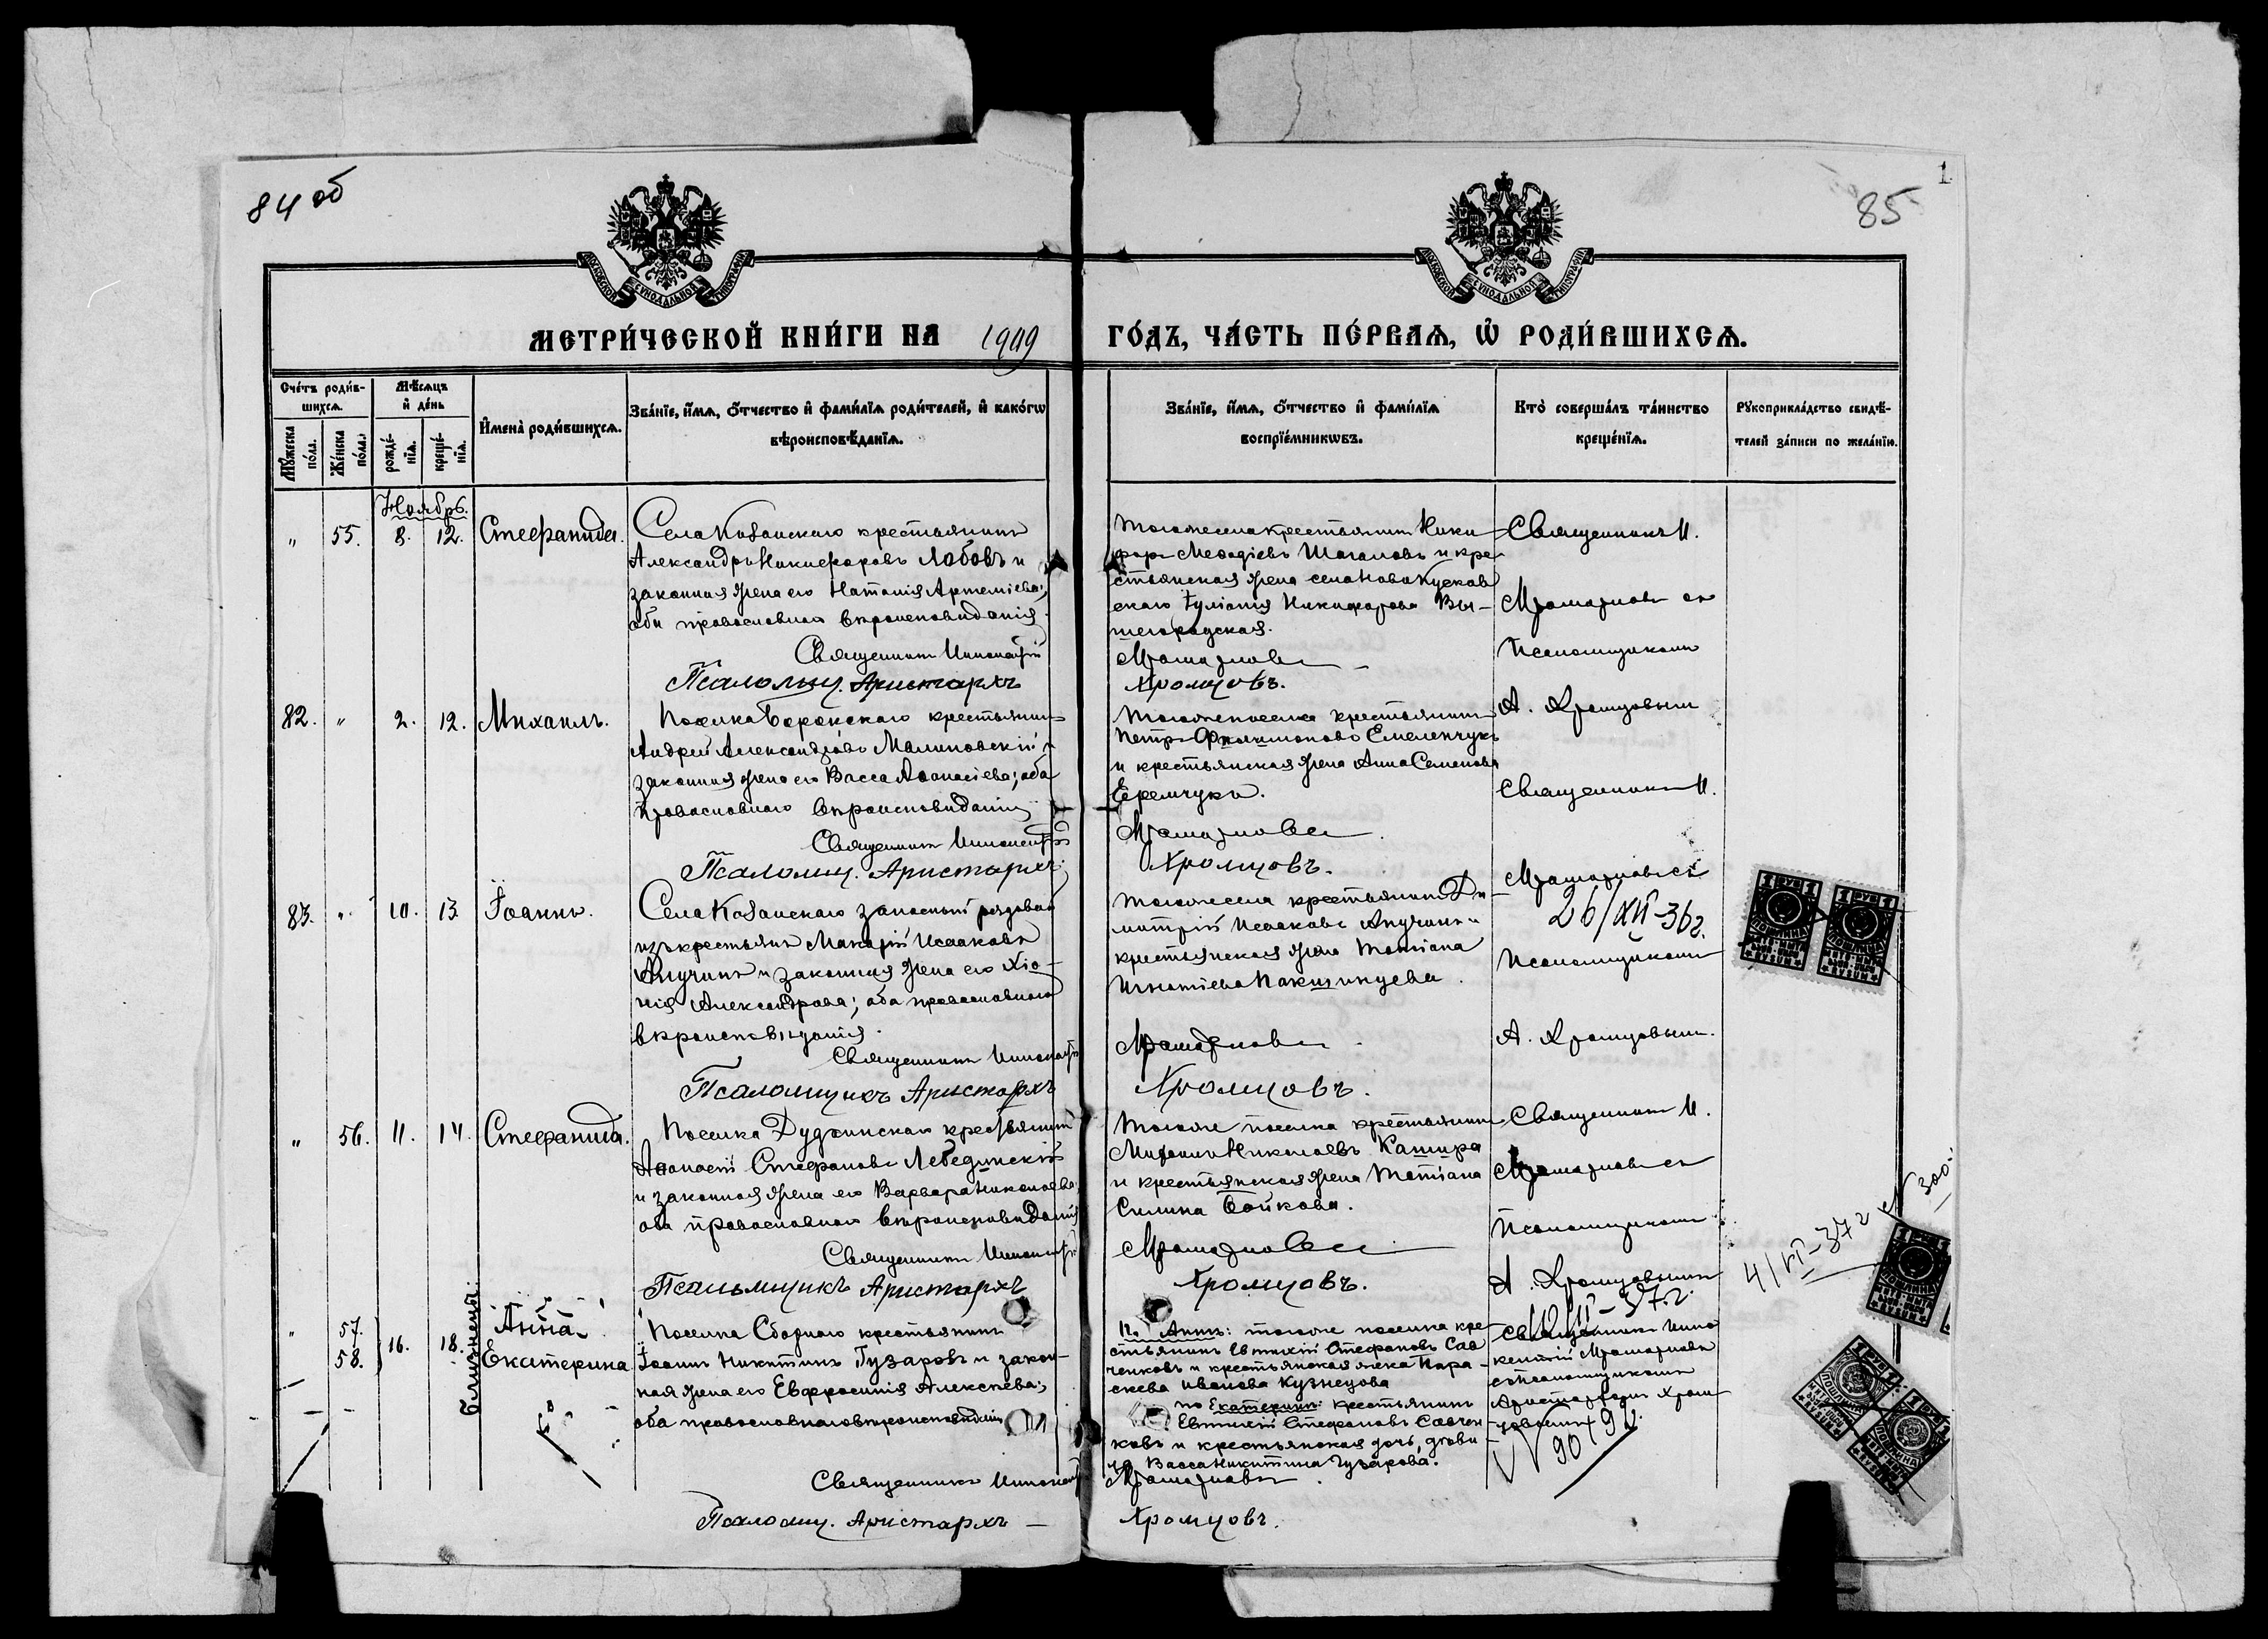 84 об
85
1
МОСКОВСКОЙ СѴНОДАЛЬНОЙ ТИПОГРАФІИ
МОСКОВСКОЙ СѴНОДАЛЬНОЙ ТИПОГРАФІИ
МЕТРИ́ЧЕСКОЙ КНИ́ГИ НА 1909 ГО́ДЪ, ЧА́СТЬ ПЕ́РВАѦ, Ѡ҆ РОДИ́ВШИХСѦ.
Сче́тъ роди́в-
шихсѧ.
Мꙋ́жеска по́ла.
Же́нска по́ла.
Мѣ́сѧцъ
и҆ де́нь
рожде́-
нїѧ.
креще́-
нїѧ.
И҆мена̀ роди́вшихсѧ.
Зва́нїе, и҆́мѧ, ѻ҆́тчество и҆ фами́лїѧ роди́телей, и҆ како́гѡ
вѣроисповѣ́данїѧ.
Зва́нїе, и҆́мѧ, ѻ҆́тчество и҆ фами́лїѧ
воспрїе́мникѡвъ.
Кто̀ соверша́лъ та́инство
креще́нїѧ.
Рꙋкоприкла́дство свидѣ́-
телей за́писи по жела́нїю.
Ноябрь.
" 55. 8. 12. Стефанида.
Села Казанскаго крестьянинъ
Александръ Никифоровъ Лобовъ и
законная жена его Наталія Артеміева;
оба православнаго вѣроисповѣданія.
Священникъ Иннокентій
Псаломщ. Аристархъ
Тогоже села крестьянинъ Ники
форъ Меѳодіевъ Шагаловъ и кре
стьянская жена села Новокусков
скаго Іуліанія Никифорова Вы-
шегородская.
Хромцовъ.
Священникъ И.
Псаломщикомъ
82. " 2. 12. Михаилъ.
Поселка Боронскаго крестьянинъ
Андрей Александровъ Малиновскій и
законная жена его Васса Аѳанасіева; оба
православнаго вѣроисповѣданія
Священникъ Иннокентій
Псаломщ. Аристархъ
Тогоже поселка крестьянинъ
Петръ Филимоновъ Емеленчукъ
и крестьянская жена Анна Семенова
Еремчукъ.
Хромцовъ.
А. Хромцовымъ
Священникъ И.
83. " 10. 13. Іоаннъ.
Села Казанскаго запасный рядовой
изъ крестьянъ Макарій Исааковъ
Анучинъ и законная жена его Хіо-
нія Александрова; оба православнаго
вѣроисповѣданія.
Священникъ Иннокентій
Псаломщикъ Аристархъ
Тогоже села крестьянинъ Ди
митрій Исааковъ Анучинъ и
крестьянская жена Татіана
Игнатіева Пакшинцева.
Хромцовъ.
26/XII-36 г.
Псаломщикомъ
А. Хромцовымъ.
" 56. 11. 14. Стефанида.
Поселка Дудкинскаго крестьянинъ
Аѳанасій Стефановъ Лебединскій
и законная жена его Варвара Николаева;
оба православнаго вѣроисповѣданія
Священникъ Иннокентій
Псаломщикъ Аристархъ
Тогоже поселка крестьянинъ
Михаилъ Николаевъ Кашира
и крестьянская жена Татіана
Силина Бойкова.
Хромцовъ.
Священникъ И.
Псаломщикомъ
А. Хромцовымъ
" 57. 58. 16. 18. Близнецы. Анна Екатерина
Поселка Сборнаго крестьянинъ
Іоаннъ Никитинъ Гузаровъ и закон-
ная жена его Евфросинія Алексѣева;
оба православнаго вѣроисповѣданія
Священникъ Иннокентій
Псаломщ. Аристархъ
По Аннѣ: тогоже поселка кре
стьянинъ Евтихій Стефановъ Сав
ченковъ и крестьянская жена Пара-
скева Иванова Кузнецова
по Екатеринѣ: крестьянинъ
Евтихій Стефановъ Савчен
ковъ и крестьянская дочь, дѣви
ца Васса Никитина Гузарова.
Хромцовъ.
Священникъ Инно
кентій
съ псаломщикомъ
Аристархомъ Хром
цовымъ
90 / 91.